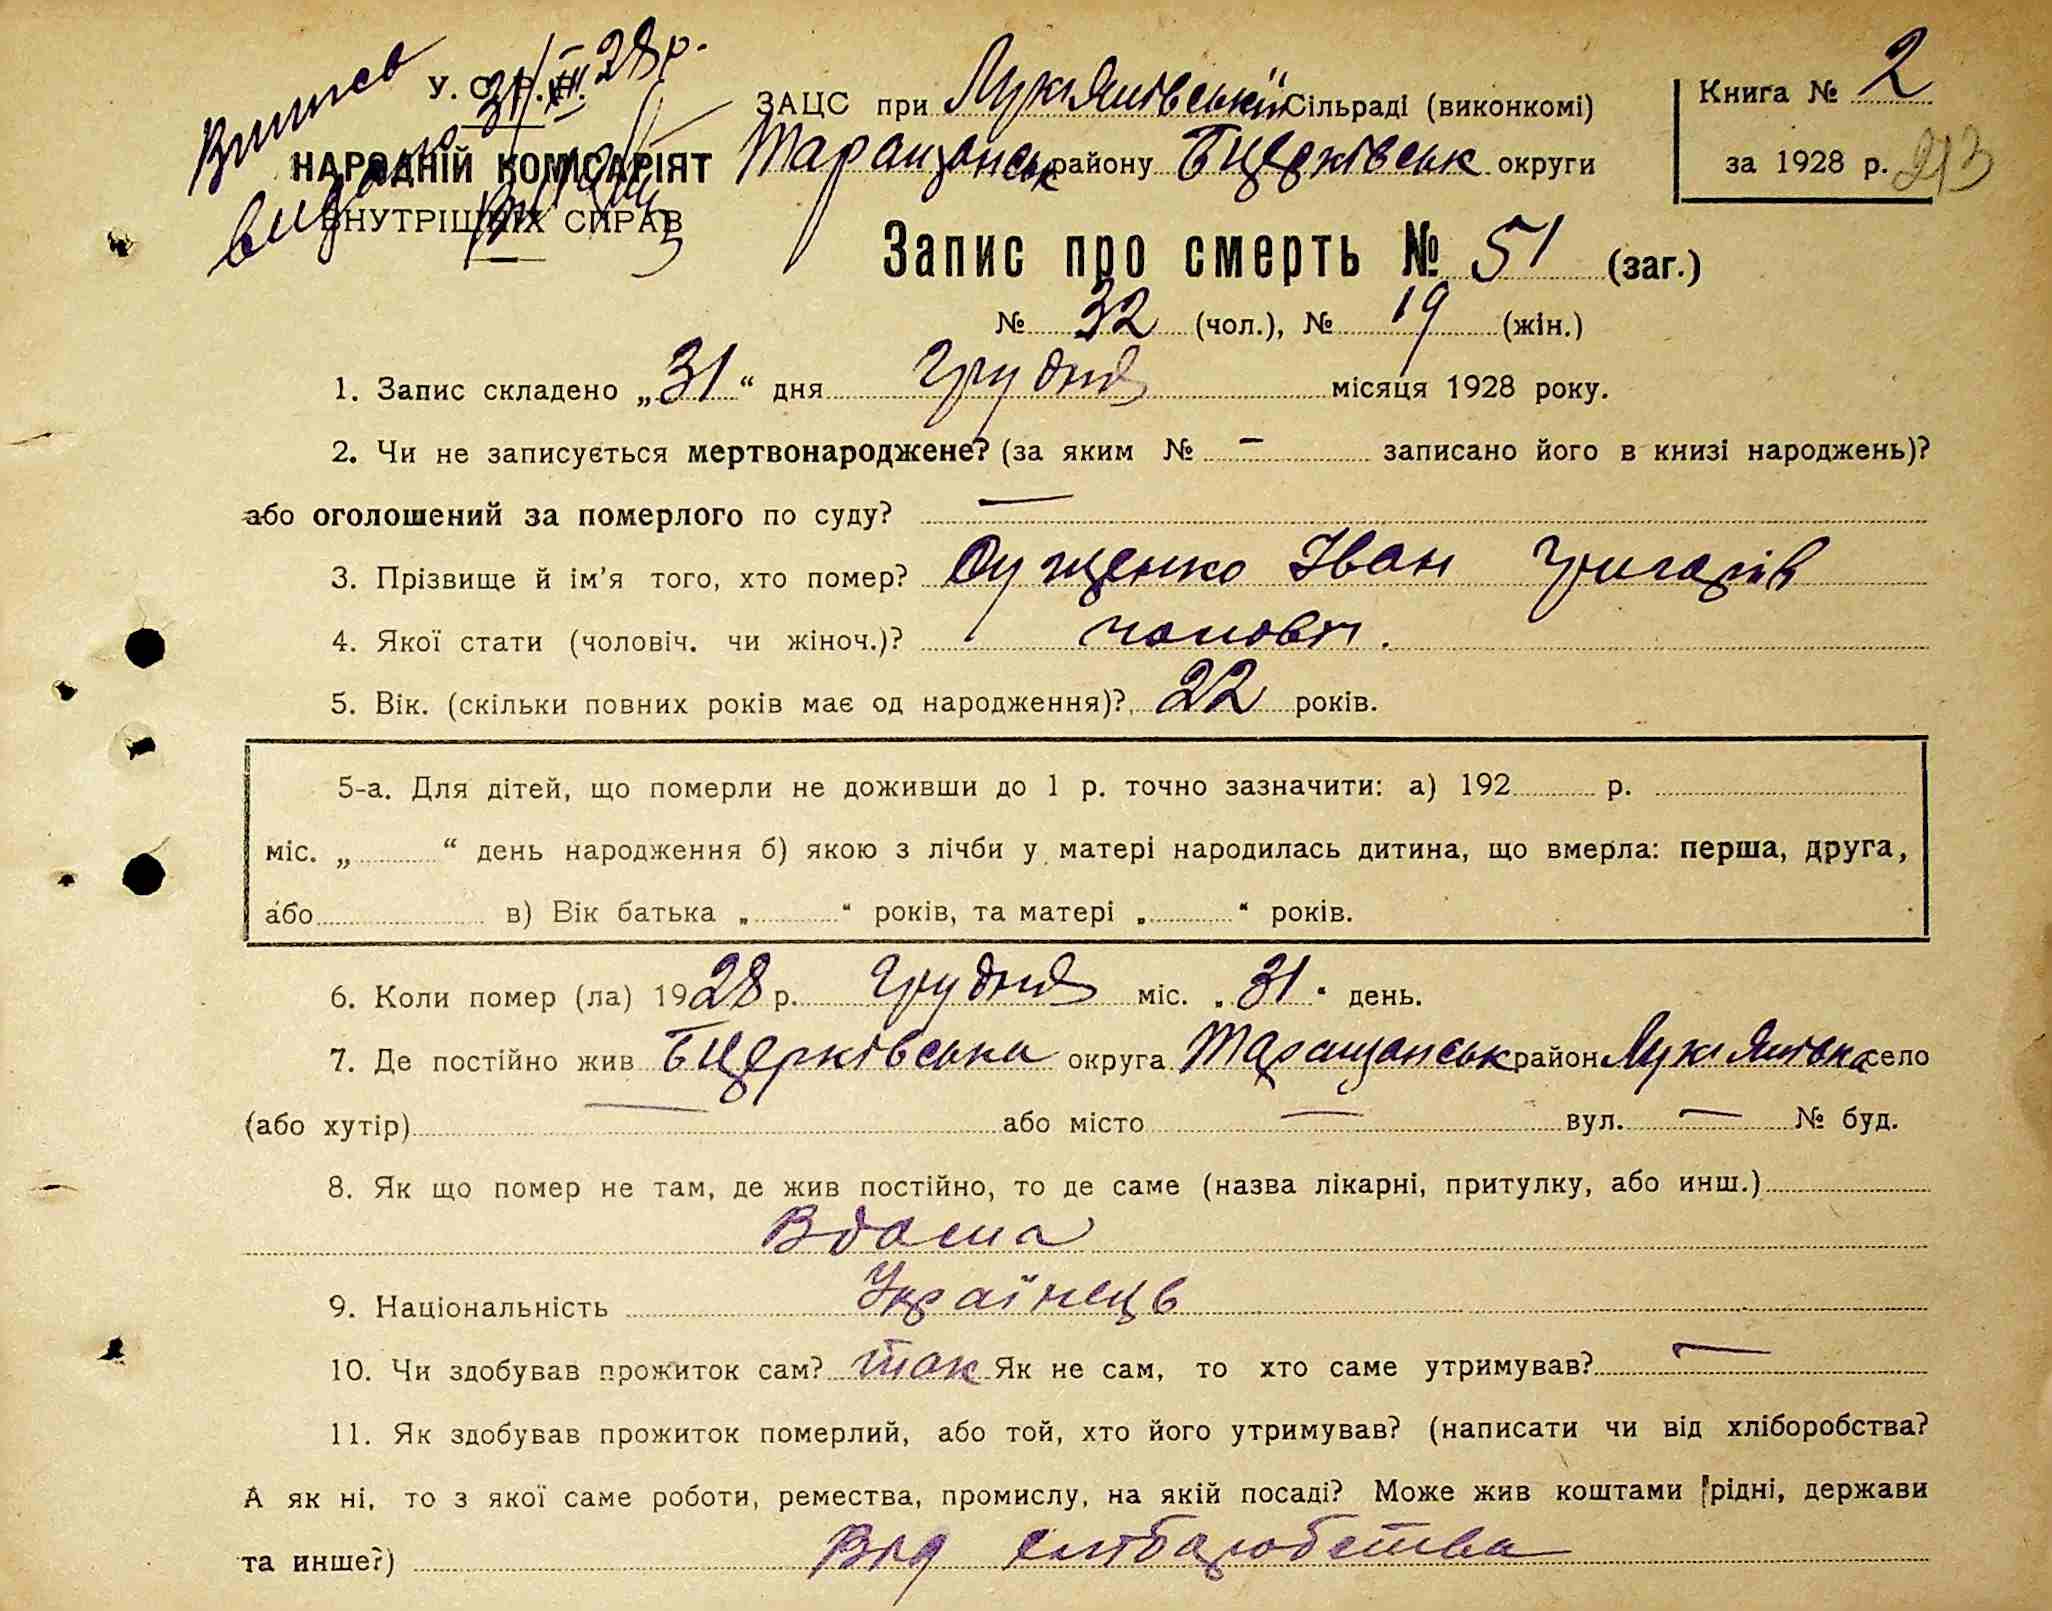 Витяг
видано 31/XII 28 р.
У. С. Р. Р.
НАРОДНІЙ КОМІСАРІЯТ
ВНУТРІШНІХ СПРАВ
ЗАЦС при Лукʼянівській Сільраді (виконкомі)
Таращанськ району БЦерківськ округи
Книга № 2
за 1928 р. 213
Запис про смерть № 51 (заг.)
№ 32 (чол.), № 19 (жін.)
1. Запис складено „31“ дня Грудня місяця 1928 року.
2. Чи не записується мертвонароджене? (за яким № – записано його в книзі народжень)?
або оголошений за померлого по суду? —
3. Прізвище й ім'я того, хто помер? Сущенко Іван Григорів
4. Якої стати (чоловіч. чи жіноч.)? чоловіч.
5. Вік. (скільки повних років має од народження)? 22 років.
5-а. Для дітей, що померли не доживши до 1 р. точно зазначити: а) 192 р.
міс. „ “ день народження б) якою з лічби у матері народилась дитина, що вмерла: перша, друга,
або в) Вік батька „ “ років, та матері „ “ років.
6. Коли помер (ла) 1928 р. Грудня міс. „31“ день.
7. Де постійно жив БЦерківська округа Таращанськ район Лукʼянівка село
(або хутір) — або місто — вул. — № буд.
8. Як що помер не там, де жив постійно, то де саме (назва лікарні, притулку, або инш.)
Вдома
9. Національність Українець
10. Чи здобував прожиток сам? так Як не сам, то хто саме утримував? —
11. Як здобував прожиток померлий, або той, хто його утримував? (написати чи від хліборобства?
А як ні, то з якої саме роботи, ремества, промислу, на якій посаді? Може жив коштами рідні, держави
та инше?) Від хліборобства